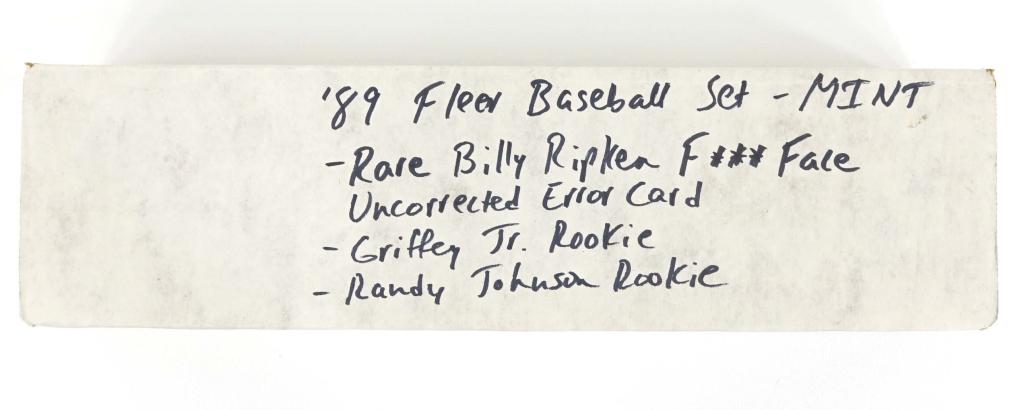 '89 Fleer Baseball Set - MINT
- Rare Billy Ripken F*** Face
Uncorrected Error Card
- Griffey Jr. Rookie
- Randy Johnson Rookie